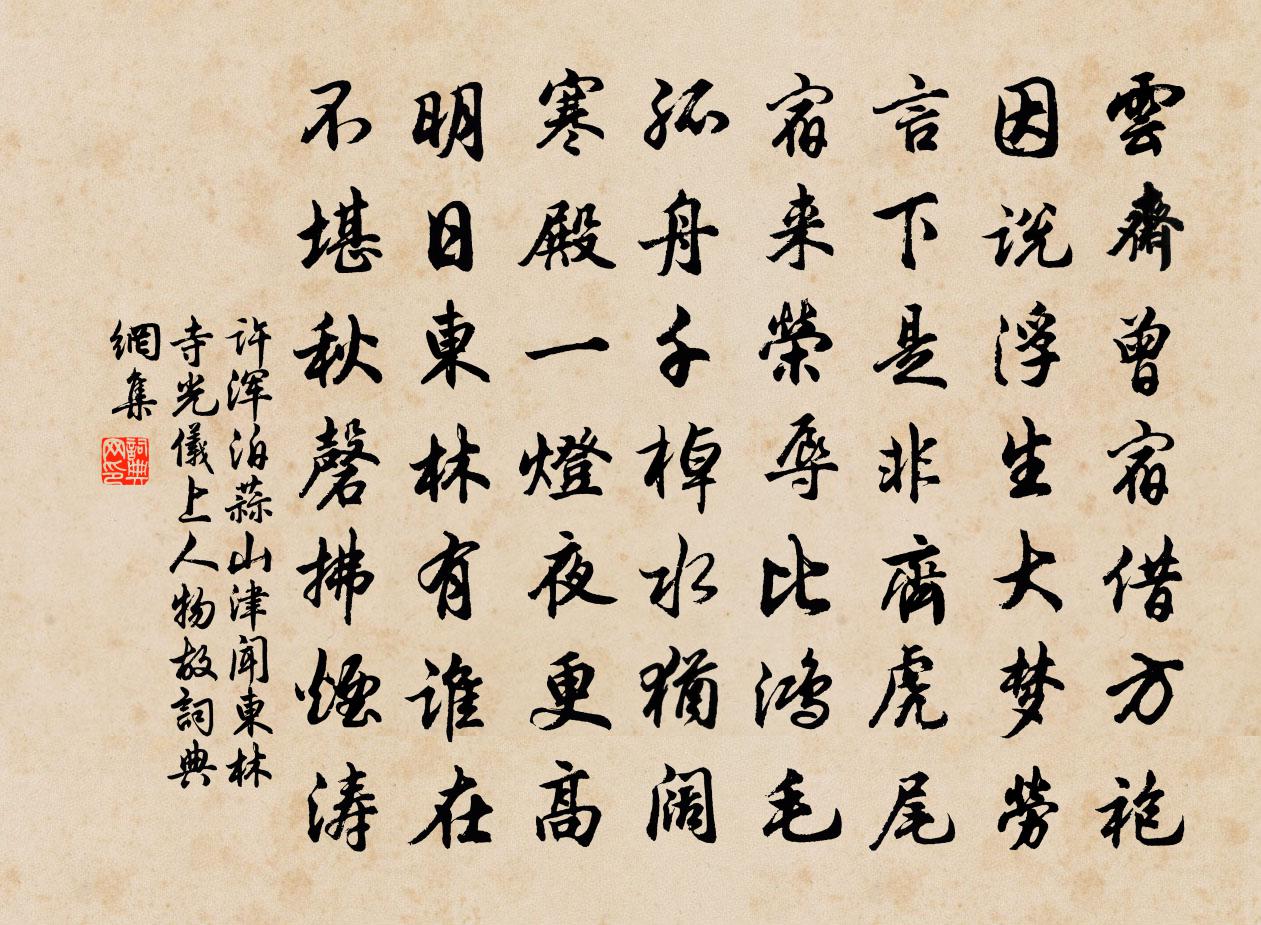 雲齋曾宿借方袍
因说浮生大梦勞
言下是非齊虎尾
宿来榮辱比鴻毛
孤舟千棹水猶阔
寒殿一燈夜更高
明日東林有谁在
不堪秋磬拂煙涛
许浑泊蒜山津闻東林
寺光儀上人物故詞典
網集
詞典网印